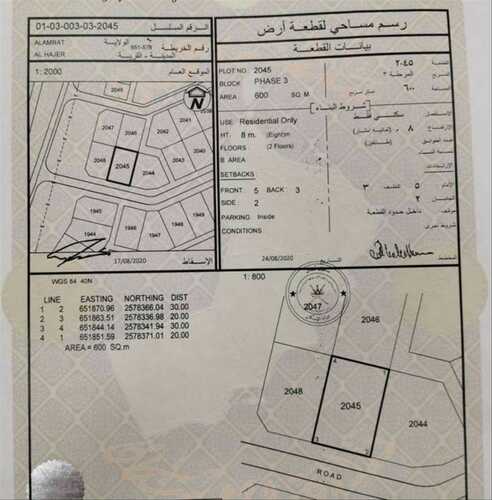 01-03-003-03-2045
الرقم المسلسل
رسم مساحي لقطعة أرض
بيانات القطعة
ALAMRAT
الولاية
AL HAJER
المدينة - القرية
رقم الخريطة
1: 2000
الموقع العام
PLOT NO 2045
٢٠٤٥
BLOCK PHASE 3
المرحلة ٣
AREA 600 SQ.M
٦٠٠
شروط البناء
USE: Residential Only
سكني فقط
HT: 8 m. (Eight)m
FLOORS (2 Floors)
B AREA
SETBACKS
FRONT 5 BACK 3
SIDE: 2
PARKING Inside
داخل حدود القطعة
CONDITIONS
2047
2046
2041
2048
2045
2044
1945
1944
1946
1947
17/08/2020
الإسقاط
24/08/2020
المخطط
WGS 84 40N
1: 800
LINE EASTING NORTHING DIST
1 2 651870.96 2578366.04 30.00
2 3 651863.51 2578336.98 20.00
3 4 651844.14 2578341.94 30.00
4 1 651851.59 2578371.01 20.00
AREA = 600 SQ.m
2047
2046
2048
2045
2044
4
1
3
2
ROAD